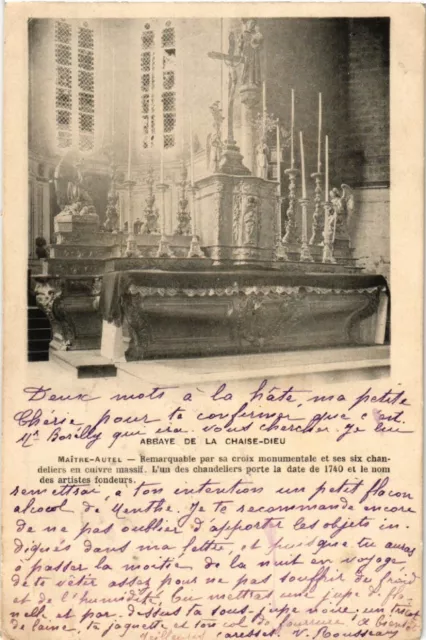 Deux mots à la hâte, ma petite
Chérie, pour te confirmer que c'est
Mr Borelly qui ira vous chercher. Je lui
ABBAYE DE LA CHAISE-DIEU
MAÎTRE-AUTEL — Remarquable par sa croix monumentale et ses six chan-
deliers en cuivre massif. L'un des chandeliers porte la date de 1740 et le nom
des artistes fondeurs.
remettrai, à ton intention un petit flacon
alcool de Menthe. Je te recommande encore
de ne pas oublier d'apporter les objets in-
diqués dans ma lettre, et puisque tu auras
à passer la moitié de la nuit en voyage,
de te vêtir assez pour ne pas souffrir du froid
et de l'humidité. Tu mettras une jupe de fla-
nelle et par-dessus ta sous-jupe noire, un tricot
de laine, ta jaquette et ton col de fourrure
caresses.